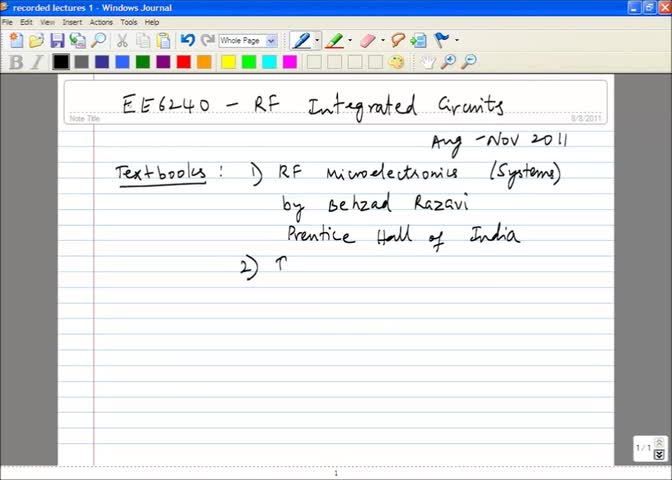 recorded lectures 1 - Windows Journal
File Edit View Insert Actions Tools Help
Whole Page
B I
EE6240 - RF Integrated Circuits
Note Title
8/8/2011
Aug - Nov 2011
Textbooks : 1) RF Microelectronics (Systems)
by Behzad Razavi
Prentice Hall of India
2) T
1/1
1